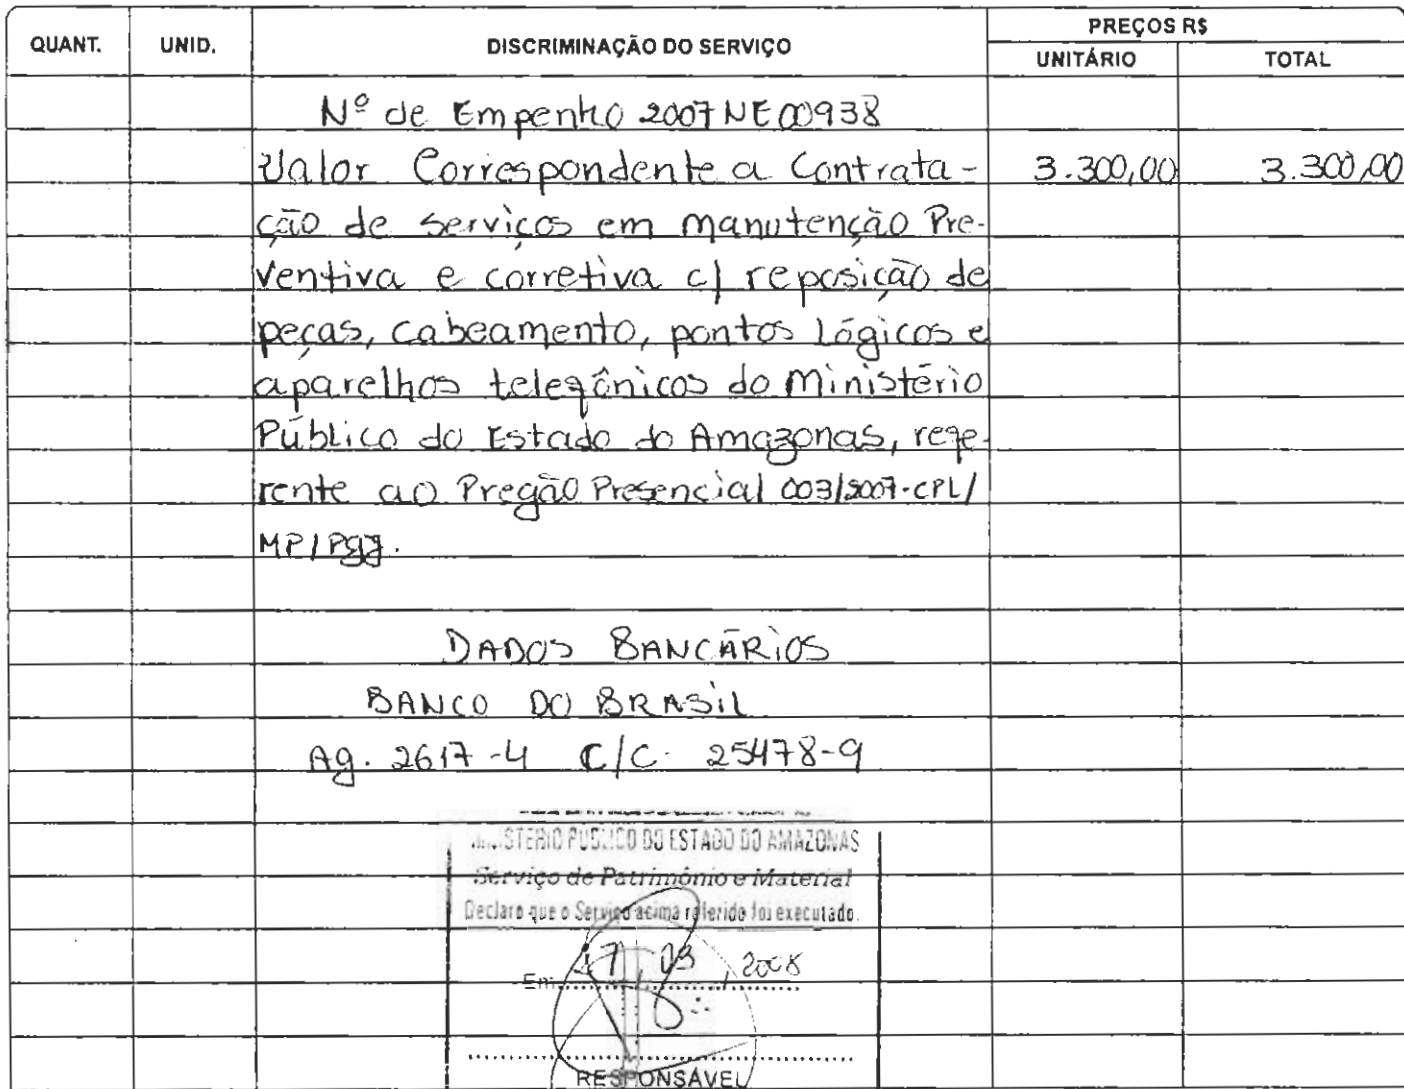 QUANT. UNID. DISCRIMINAÇÃO DO SERVIÇO PREÇOS R$
UNITÁRIO TOTAL
Nº de Empenho 2007NE00938
Valor Correspondente a Contrata- 3.300,00 3.300,00
ção de serviços em manutenção Pre-
ventiva e corretiva c/ reposição de
peças, cabeamento, pontos Lógicos e
aparelhos telefônicos do Ministério
Público do Estado do Amazonas, refe-
rente ao Pregão Presencial 003/2007-CPL/
MP/PGJ.
DADOS BANCÁRIOS
BANCO DO BRASIL
Ag. 2617-4 C/C. 25478-9
MINISTÉRIO PÚBLICO DO ESTADO DO AMAZONAS
Serviço de Patrimônio e Material
Declaro que o Serviço acima referido foi executado.
Em 17, 03, 2008
RESPONSÁVEL